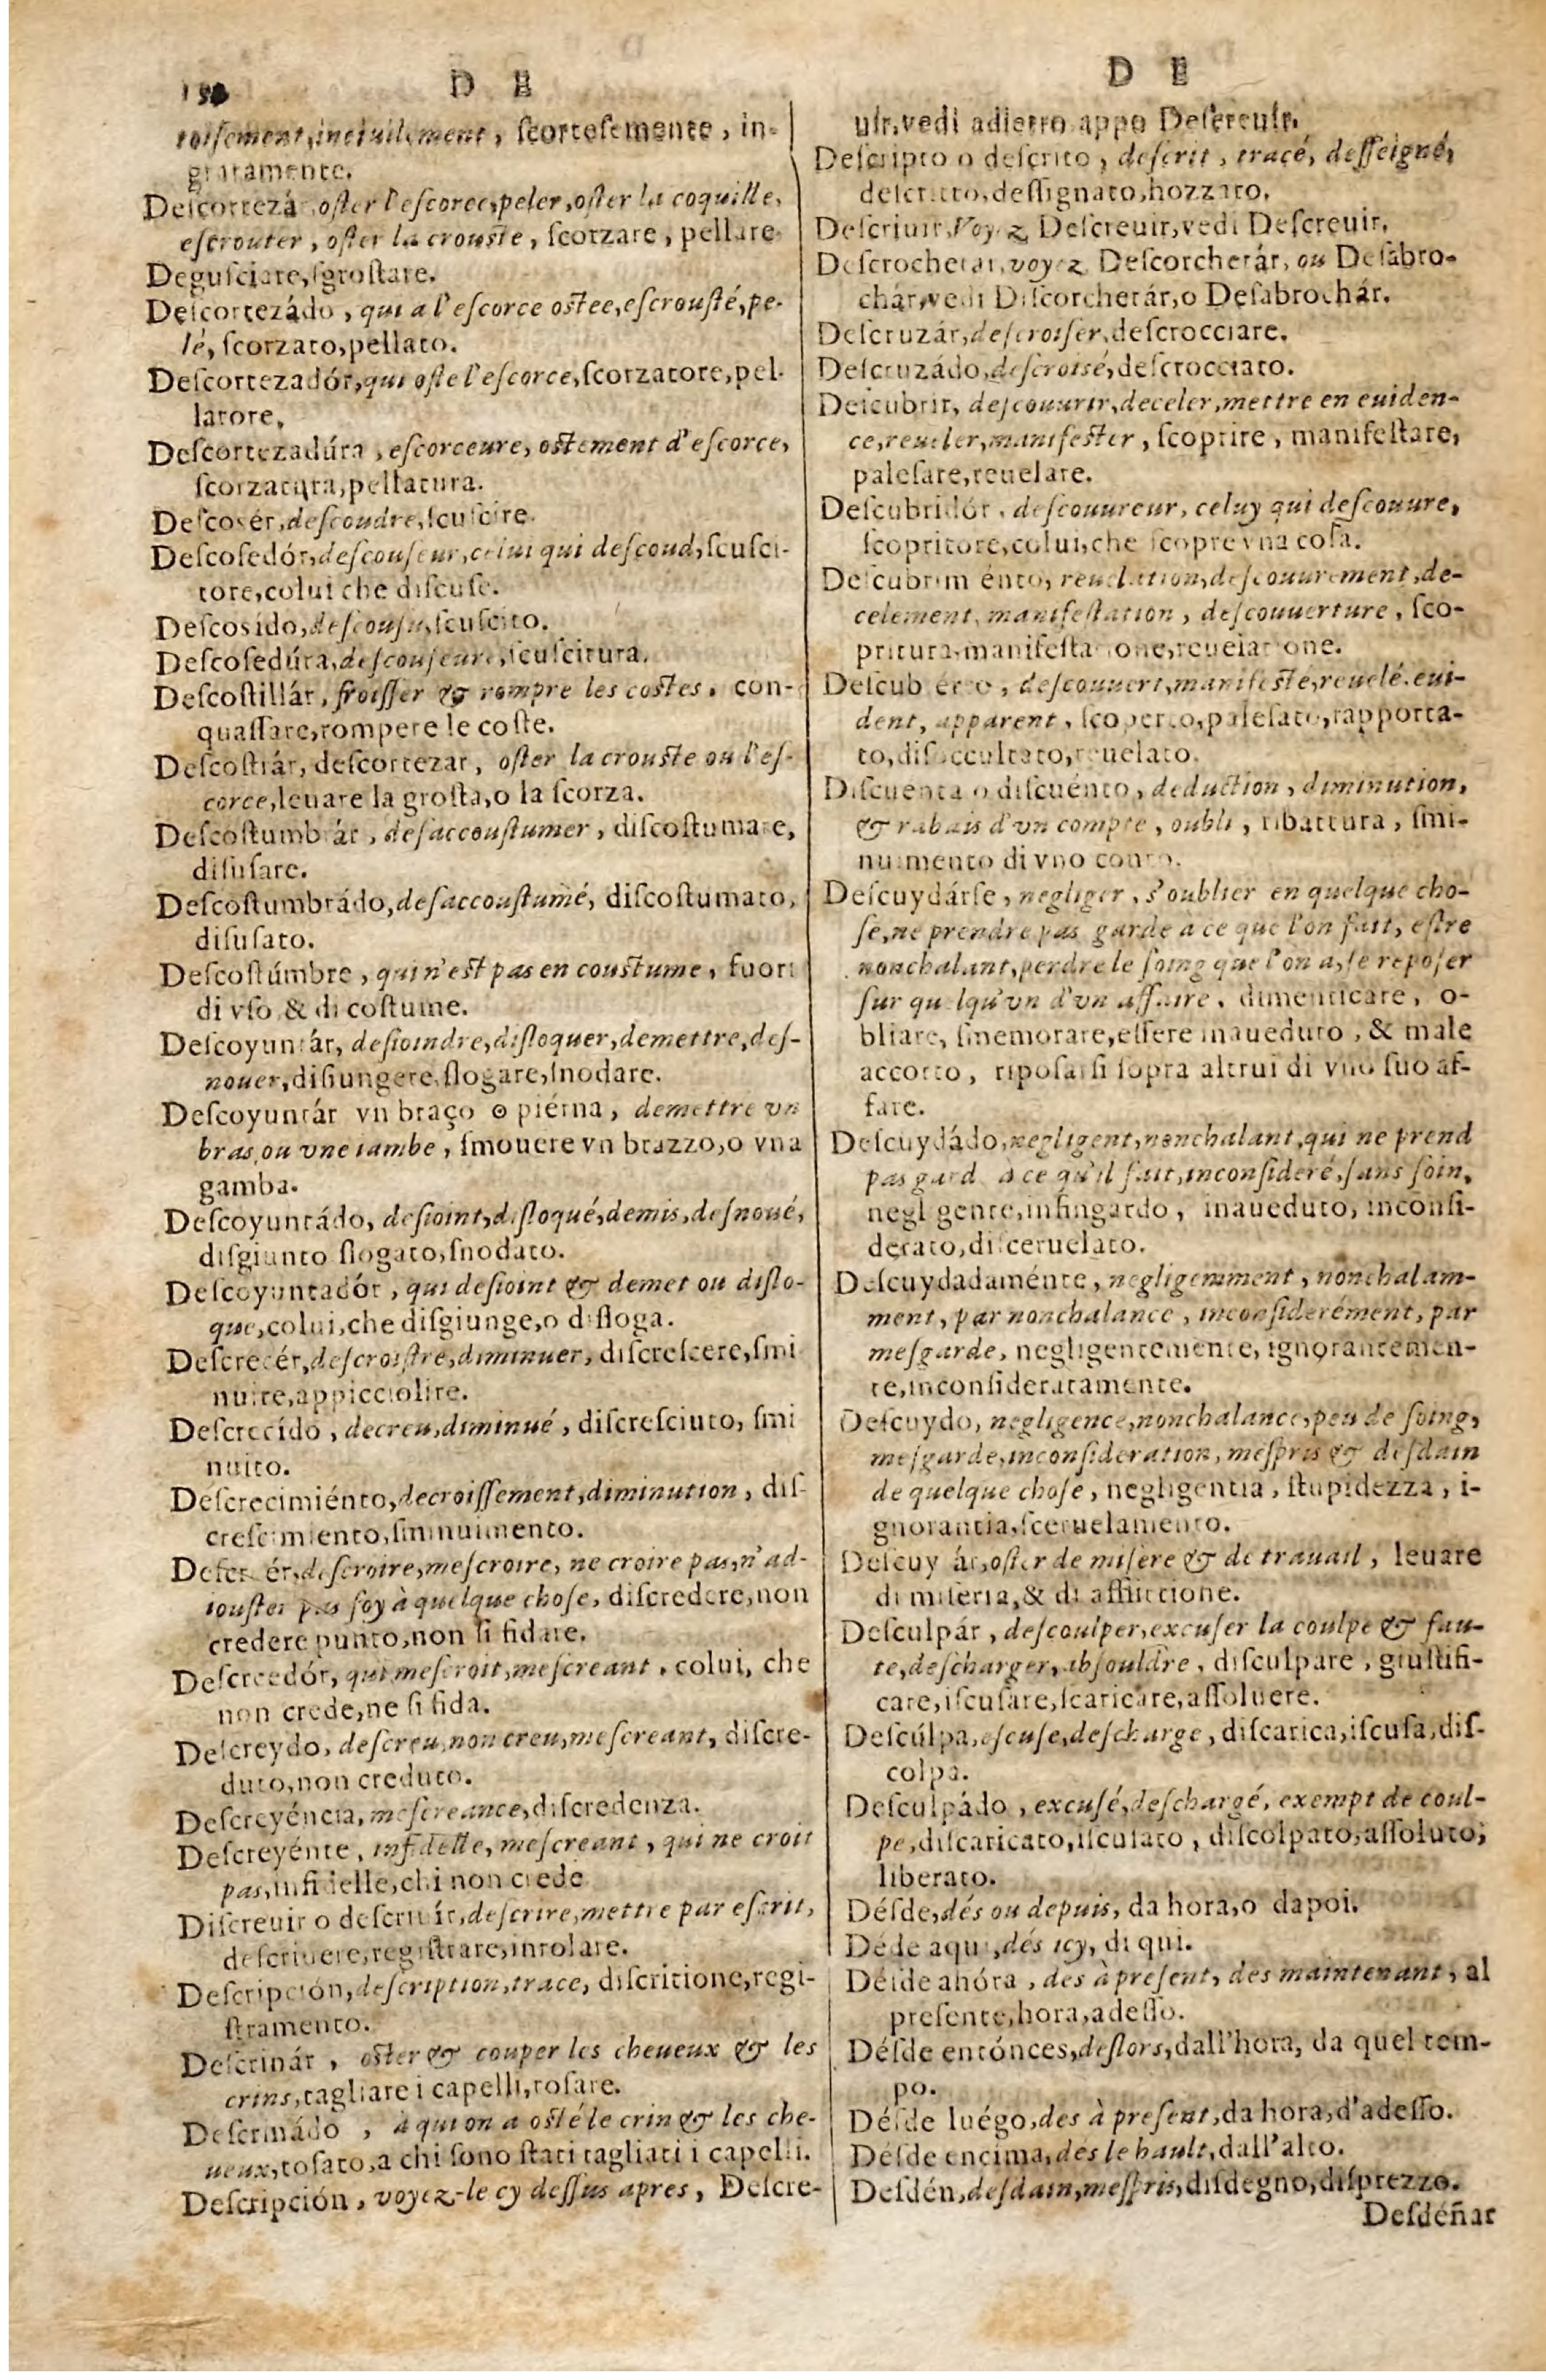 D E
toisement, inciuilement, ſcorteſemente, in-
gratamente.
Deſcortezá, oſter l'eſcorce, peler, oſter la coquille,
eſcrouter, oſter la crouſte, ſcorzare, pellare
Deguſciare, ſgroſtare.
Deſcortezádo, qui a l'eſcorce oſtee, eſcrouſté, pe-
lé, ſcorzato, pellato.
Deſcortezadór, qui oſte l'eſcorce, ſcorzatore, pel-
latore,
Deſcortezadúra, eſcorceure, oſtement d'eſcorce,
ſcorzatura, pellatura.
Deſcosér, deſcoudre, ſcuſcire.
Deſcoſedór, deſcouſeur, celui qui deſcoud, ſcuſci-
tore, colui che diſcuſe.
Deſcosido, deſcouſu, ſcuſcito.
Deſcoſedúra, deſcouſeure, ſcuſcitura.
Deſcoſtillár, froiſſer & rompre les coſtes, con-
quaſſare, rompere le coſte.
Deſcoſtrár, deſcortezar, oſter la crouſte ou l'eſ-
corce, leuare la groſta, o la ſcorza.
Deſcoſtumbrár, deſaccouſtumer, diſcoſtumare,
diſuſare.
Deſcoſtumbrádo, deſaccouſtumé, diſcoſtumato,
diſuſato.
Deſcoſtúmbre, qui n'eſt pas en couſtume, fuori
di vſo & di coſtume.
Deſcoyuntár, deſioindre, diſloquer, demettre, deſ-
nouer, diſiungere, ſlogare, ſnodare.
Deſcoyuntár vn braço o piérna, demettre vn
bras, ou vne iambe, ſmouere vn brazzo, o vna
gamba.
Deſcoyuntádo, deſioint, diſloqué, demis, deſnoué,
diſgiunto ſlogato, ſnodato.
Deſcoyuntadór, qui deſioint & demet ou diſlo-
que, colui, che diſgiunge, o diſloga.
Deſcrecér, deſcroiſtre, diminuer, diſcreſcere, ſmi
nuire, appicciolire.
Deſcrecído, decreu, diminué, diſcreſciuto, ſmi
nuito.
Deſcrecimiénto, decroiſſement, diminution, diſ-
creſcimiento, ſminuimento.
Deſcreér, deſcroire, meſcroire, ne croire pas, n'ad-
iouſter pas foy à quelque choſe, diſcredere, non
credere punto, non ſi fidare.
Deſcreedór, qui meſcroit, meſcreant, colui, che
non crede, ne ſi fida.
Deſcreydo, deſcreu, non creu, meſcreant, diſcre-
duto, non creduto.
Deſcreyéncia, meſcreance, diſcredenza.
Deſcreyénte, infidelle, meſcreant, qui ne croit
pas, infidelle, chi non crede
Diſcreuir o deſcriuír, deſcrire, mettre par eſcrit,
deſcriuere, regiſtrare, inrolare.
Deſcripción, deſcription, trace, diſcritione, regi-
ſtramento.
Deſcrinár, oſter & couper les cheueux & les
crins, tagliare i capelli, toſare.
Deſcrinádo, à qui on a oſté le crin & les che-
ueux, toſato, a chi ſono ſtati tagliati i capelli.
Deſcripción, voyez-le cy deſſus apres, Deſcre-
D E
uir, vedi adietro appo Deſcreuir.
Deſcripto o deſcrito, deſcrit, tracé, deſſeigné,
deſcritto, deſſignato, bozzato.
Deſcriuir, Voyez Deſcreuir, vedi Deſcreuir.
Deſcrochetar, voyez Deſcorchetár, ou Deſabro-
chár, vedi Diſcorchetár, o Deſabrochár.
Deſcruzár, deſcroiſer, deſcrocciare.
Deſcruzádo, deſcroisé, deſcrocciato.
Deſcubrir, deſcouurir, deceler, mettre en euiden-
ce, reueler, manifeſter, ſcoprire, manifeſtare,
paleſare, reuelare.
Deſcubridór, deſcouureur, celuy qui deſcouure,
ſcopritore, colui, che ſcopre vna coſa.
Deſcubrim énto, reuelation, deſcouurement, de-
celement, manifeſtation, deſcouuerture, ſco-
pritura, manifeſtatione, reuelatione.
Deſcub érto, deſcouuert, manifeſte, reuelé, eui-
dent, apparent, ſcoperto, paleſato, rapporta-
to, diſoccultato, reuelato.
Diſcuenta o diſcuénto, deduction, diminution,
& rabais d'vn compte, oubli, ribattura, ſmi-
nuimento di vno conto.
Deſcuydárſe, negliger, s'oublier en quelque cho-
ſe, ne prendre pas garde à ce que l'on fait, eſtre
nonchalant, perdre le ſoing que l'on a, ſe repoſer
ſur quelqu'vn d'vn affaire, dimenticare, o-
bliare, ſmemorare, eſſere inaueduto, & male
accorto, ripoſarſi ſopra altrui di vno ſuo af-
fare.
Deſcuydádo, negligent, nonchalant, qui ne prend
pas gard à ce qu'il fait, inconſideré, ſans ſoin,
negligente, infingardo, inaueduto, inconſi-
derato, diſceruelato.
Deſcuydadaménte, negligemment, nonchalam-
ment, par nonchalance, inconſiderément, par
meſgarde, negligentemente, ignorantemen-
te, inconſideratamente.
Deſcuydo, negligence, nonchalance, peu de ſoing,
meſgarde, inconſideration, meſpris & deſdain
de quelque choſe, negligentia, ſtupidezza, i-
gnorantia, ſceruelamento.
Deſcuy ár, oſter de miſere & de trauail, leuare
di miſeria, & di afflittione.
Deſculpár, deſcoulper, excuſer la coulpe & fau-
te, deſcharger, abſouldre, diſculpare, giuſtifi-
care, iſcuſare, ſcaricare, aſſoluere.
Deſcúlpa, eſcuſe, deſcharge, diſcarica, iſcuſa, diſ-
colpa.
Deſculpádo, excuſé, deſchargé, exempt de coul-
pe, diſcaricato, iſcuſato, diſcolpato, aſſoluto,
liberato.
Déſde, dés ou depuis, da hora, o dapoi.
Déde aqui, dés icy, di qui.
Déſde ahóra, des à preſent, des maintenant, al
preſente, hora, adeſſo.
Déſde entónces, deſlors, dall'hora, da quel tem-
po.
Déſde luégo, des à preſent, da hora, d'adeſſo.
Déſde encima, dés le hault, dall'alto.
Deſdén, deſdain, meſpris, diſdegno, diſprezzo.
Deſdéñar